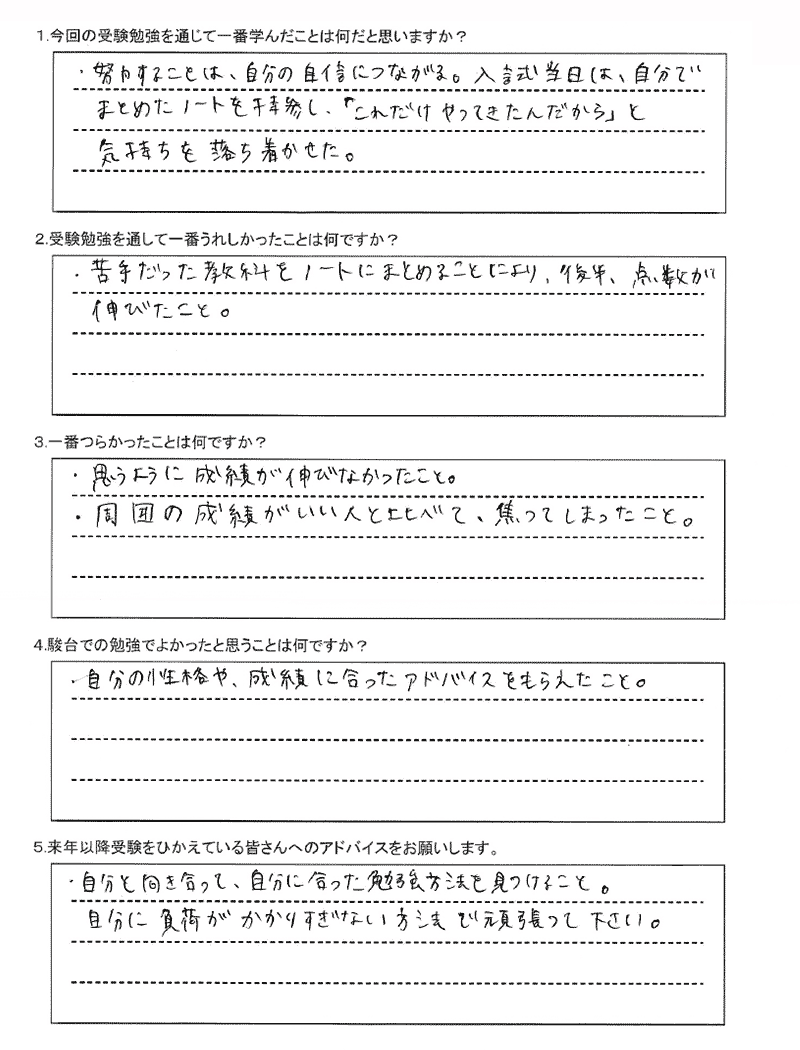 1.今回の受験勉強を通じて一番学んだことは何だと思いますか？
・努力することは、自分の自信につながる。入試当日は、自分で
まとめたノートを持参し、「これだけやってきたんだから」と
気持ちを落ち着かせた。
2.受験勉強を通して一番うれしかったことは何ですか？
・苦手だった教科をノートにまとめることにより、後半、点数が
伸びたこと。
3.一番つらかったことは何ですか？
・思うように成績が伸びなかったこと。
・周囲の成績がいい人と比べて、焦ってしまったこと。
4.駿台での勉強でよかったと思うことは何ですか？
・自分の性格や、成績に合ったアドバイスをもらえたこと。
5.来年以降受験をひかえている皆さんへのアドバイスをお願いします。
・自分と向き合って、自分に合った勉強方法を見つけること。
自分に負荷がかかりすぎない方法で頑張って下さい。